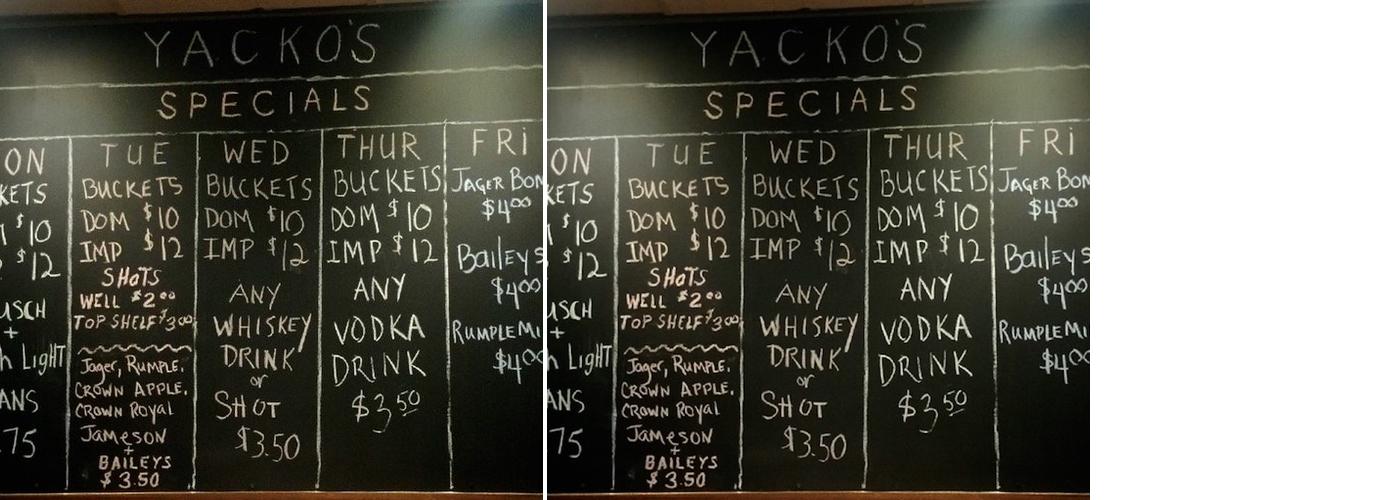 YACKO'S
SPECIALS
ON
KETS
$10
$12
USCH
+
h LIGHT
ANS
.75
TUE
BUCKETS
DOM $10
IMP $12
SHOTS
WELL $2.00
TOP SHELF $3.00
Jager, RUMPLE,
CROWN APPLE,
CROWN ROYAL
JAMESON
+
BAILEYS
$3.50
WED
BUCKETS
DOM $10
IMP $12
ANY
WHISKEY
DRINK
or
SHOT
$3.50
THUR
BUCKETS
DOM $10
IMP $12
ANY
VODKA
DRINK
$3.50
FRi
JAGER BOM
$4.00
Baileys
$4.00
RUMPLE Mi
$4.00
YACKO'S
SPECIALS
ON
KETS
$10
$12
USCH
+
h LIGHT
ANS
75
TUE
BUCKETS
DOM $10
IMP $12
SHOTS
WELL $2.00
TOP SHELF $3.00
Jager, RUMPLE,
CROWN APPLE,
CROWN ROYAL
JAMESON
+
BAILEYS
$3.50
WED
BUCKETS
DOM $10
IMP $12
ANY
WHISKEY
DRINK
or
SHOT
$3.50
THUR
BUCKETS
DOM $10
IMP $12
ANY
VODKA
DRINK
$3.50
FRi
JAGER BOM
$4.00
Baileys
$4.00
RUMPLE Mi
$4.00